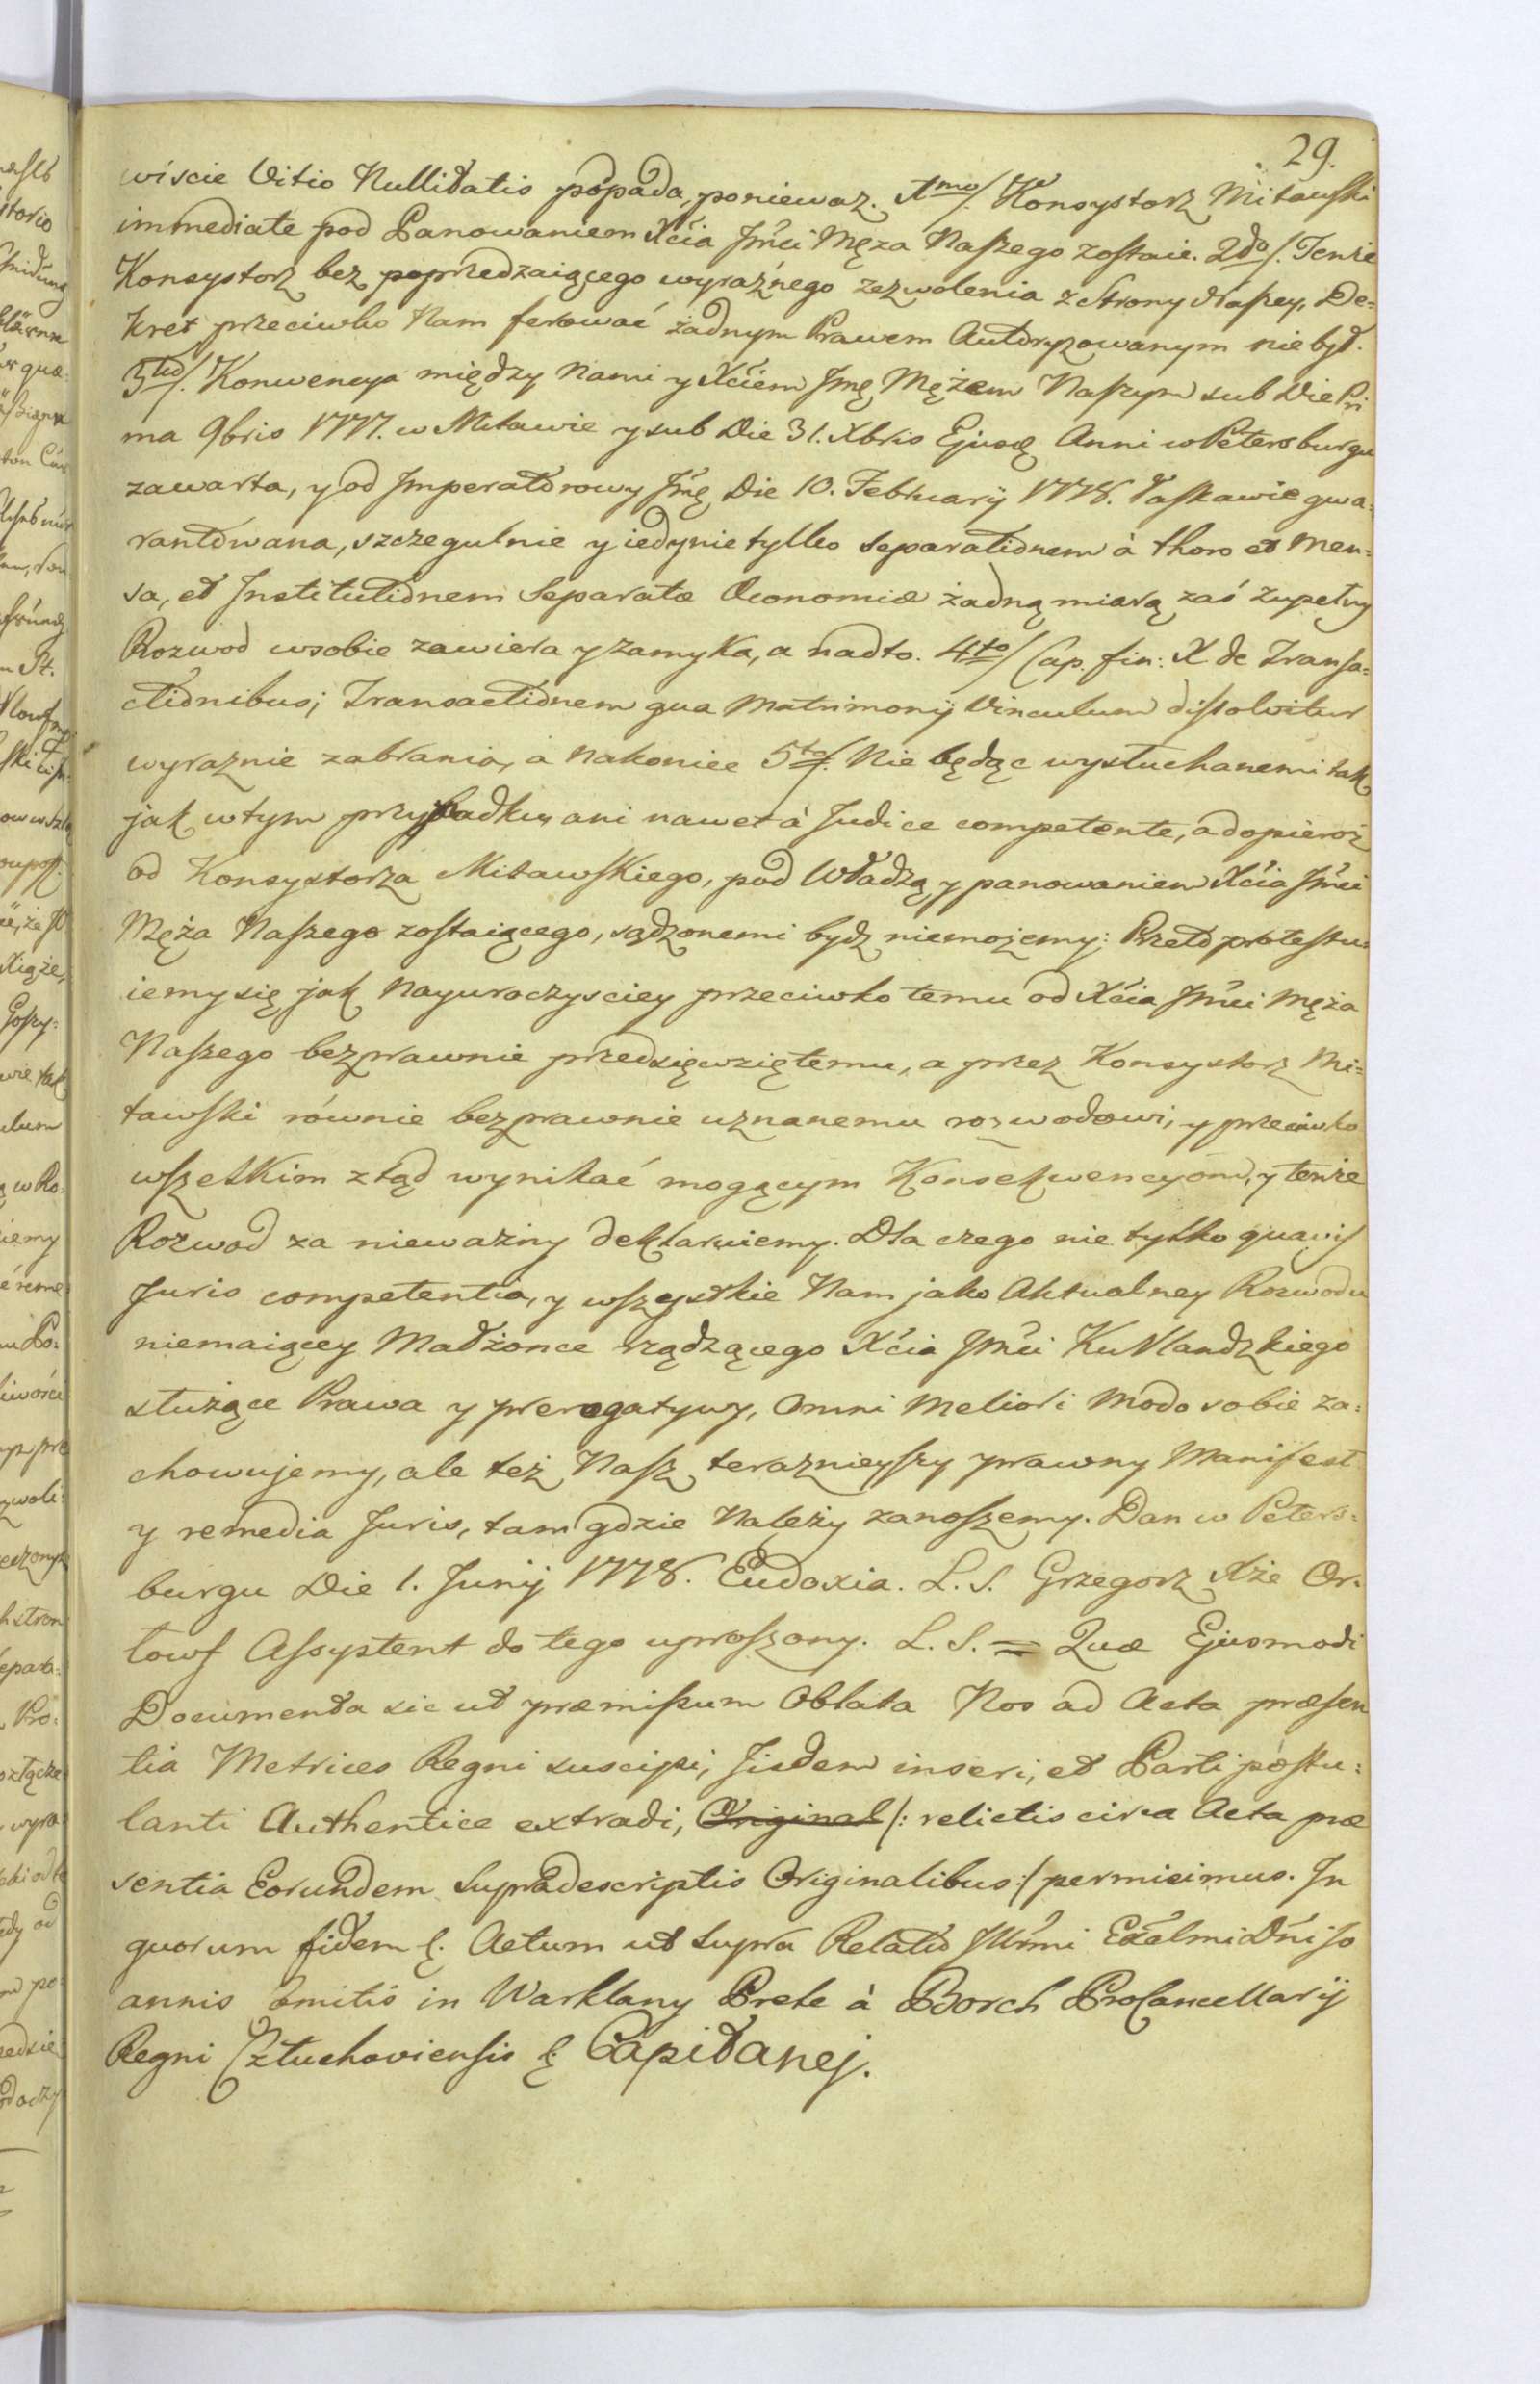 29.
wiście Vitio Nullitatis popada, poniewaz. 1mo/. Konsystorz Mitawski
immediate pod Panowaniem Xcia Jmci Męza Naszego zostaie. 2do/. Tenże
Konsystorz bez poprzedzaiącego wyraźnego zezwolenia z Strony Naszey, De=
kret przeciwko Nam ferować żadnym Prawem Autoryzowanym nie był.
3tio/. Konwencya między Nami y Xciem Jmę Mężem Naszym sub Die Pri
ma 9bris 1777. w Mitawie y sub Die 31. Xbris Ejusdę Anni w Petersburgu
zawarta, y od Imperatorowy Jmę Die 10. February 1778. Łaskawie gwa=
rantowana, szczegulnie y iedynie tylko separationem à thoro et Men=
sa, et Institutionem Separatæ Œconomiæ żadną miarą zaś zupełny
Rozwod w sobie zawiera y zamyka, a nadto. 4to/ Cap. fin: X de Transa=
ctionibus; Transactionem qua Matrimonÿ Vinculum dissolvitur
wyraznie zabrania, a nakoniec 5to/. Nie będąc wysłuchanemi tak
jak w tym przypadku, ani nawet à Judice competente, a dopieroż
od Konsystorza Mitawskiego, pod Władzą y panowaniem Xcia Jmci
Męża Naszego zostaiącego, sądzonemi bydz niemożemy: Przeto protestu=
iemy się jak Nayuroczysciey przeciwko temu od Xcia Jmci Męża
Naszego bezprawnie przedsięwziętemu, a przez Konsystorz Mi=
tawski równie bezprawnie uznanemu rozwodowi, y przeciwko
wszelkim ztąd wynikać mogącym Konsekwencyom, y tenże
Rozwod za nieważny deklaruiemy. Dla czego nie tylko quævis
Juris competentia, y wszystkie Nam jako Aktualney Rozwodu
niemaiącey Małżonce rządzącego Xcia Jmci Kurlandzkiego
służące Prawa y prerogatywy, Omni Meliori Modo sobie za=
chowujemy, ale też Nasz teraznieyszy prawny Manifest
y remedia Juris, tam gdzie Należy zanoszemy. Dan w Peters=
burgu Die 1. Junij 1778. Eudoxia. L. S. Grzegorz Xże Or=
łowf Assystent do tego uproszony. L. S. = Quæ Ejusmodi
Documenta sic ut præmissum Oblata Nos ad Acta præsen
tia Metrices Regni suscipi, Jisdem inseri, et Parti postu=
lanti Authentice extradi, Original /: relictis circa Acta præ
sentia Eorundem supradescriptis Originalibus :/ permisimus. In
quorum fidem ę. Actum ut supra Relatio Illmi Excelmi Dni Jo
annis Comitis in Warklany Prele à Borch ProCancellarÿ
Regni Człuchoviensis ę Capitanej.